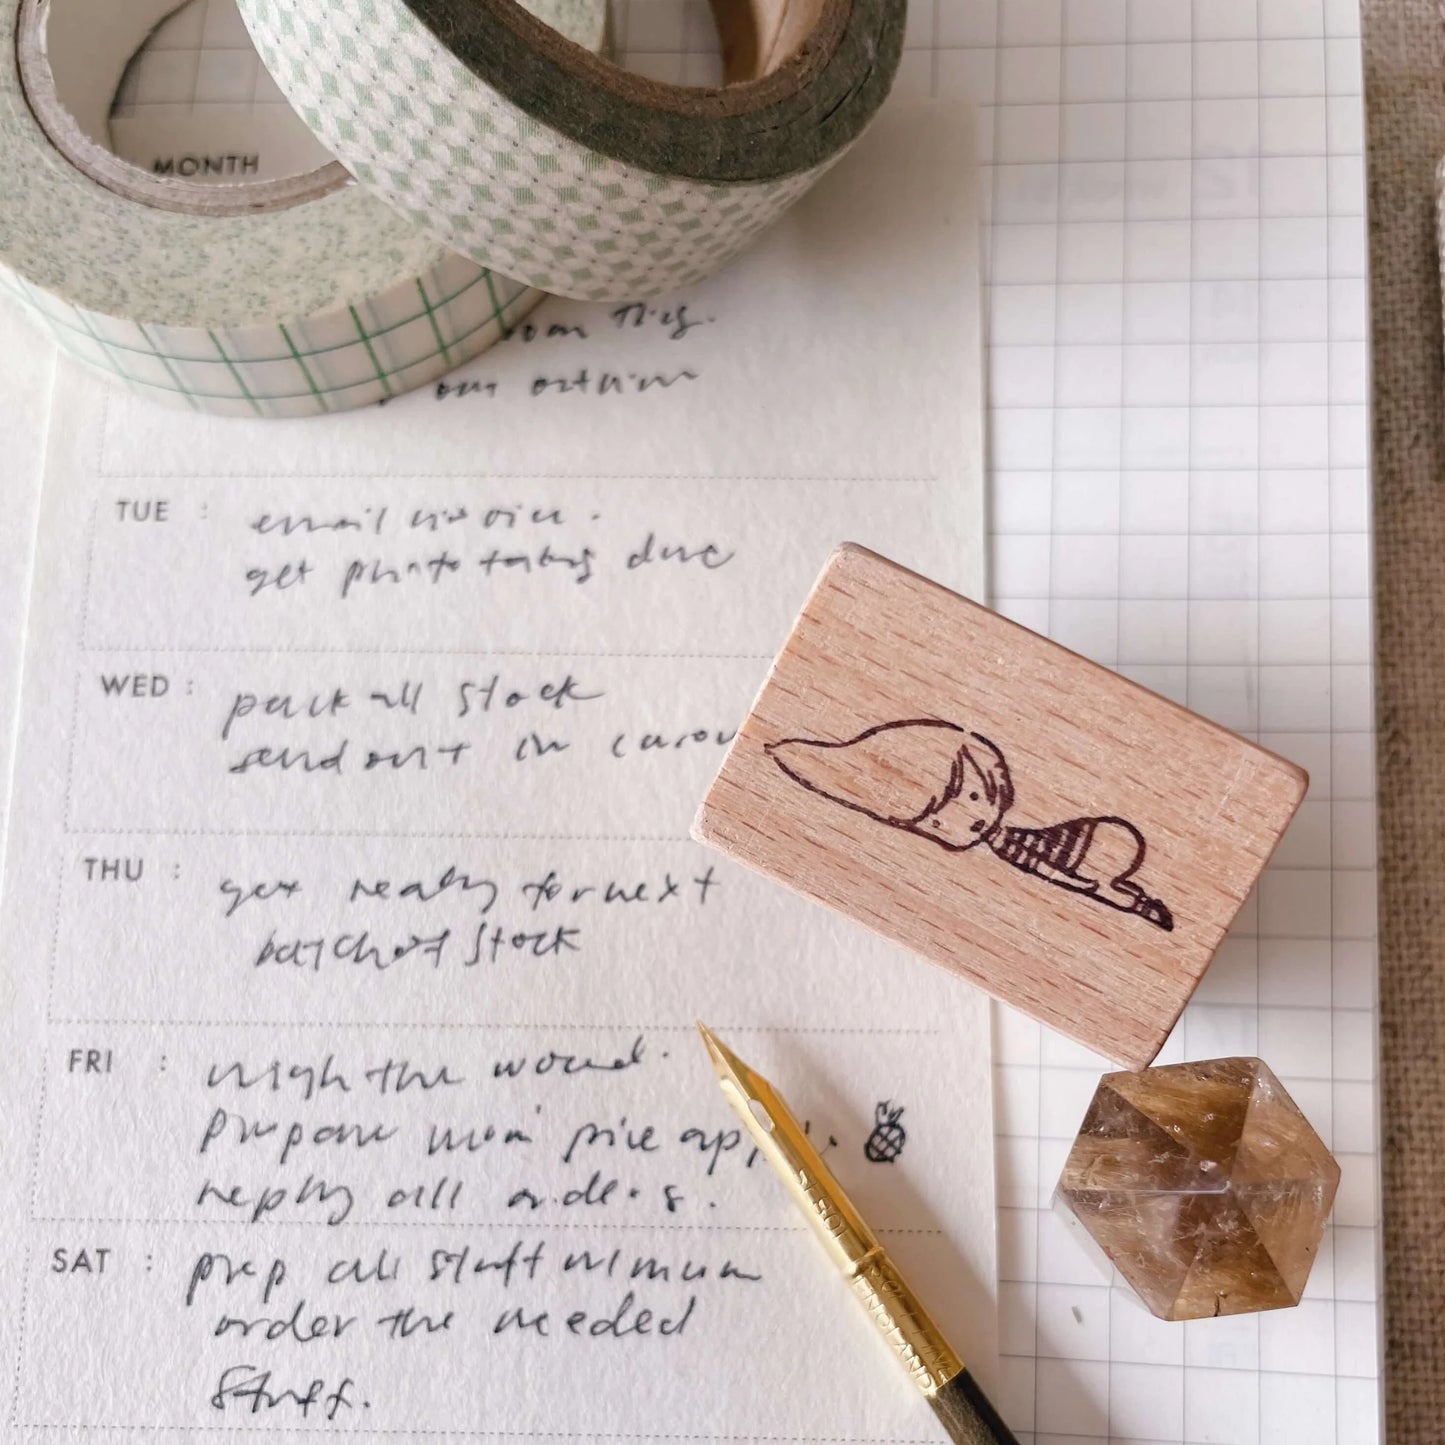 MONTH
out
TUE :
email invoice.
get photo taking due
WED :
pack all stock
send out in
THU :
get ready for next
batch of stock
FRI :
weigh the wound.
prepare mom pineapple.
reply all orders.
SAT :
prep all stuff minimum
order the needed
stuff.
ENGLAND